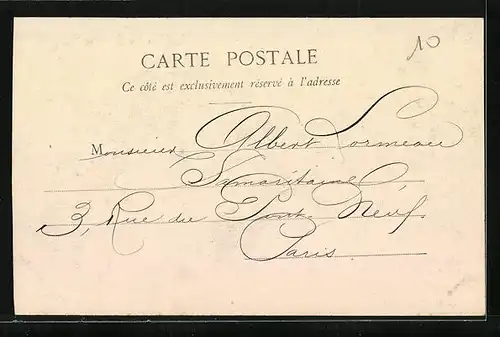 10
CARTE POSTALE
Ce côté est exclusivement réservé à l'adresse
Monsieur Albert Lormeau
Samaritaine,
3, Rue du Pont-Neuf
Paris.